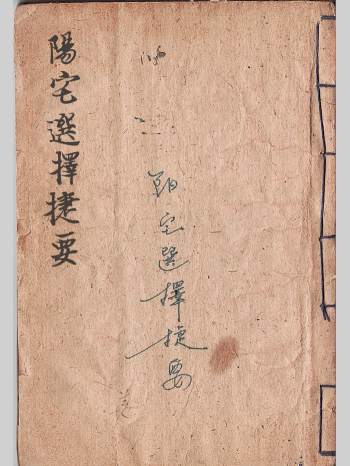 陽宅選擇捷要
陽宅選擇捷要